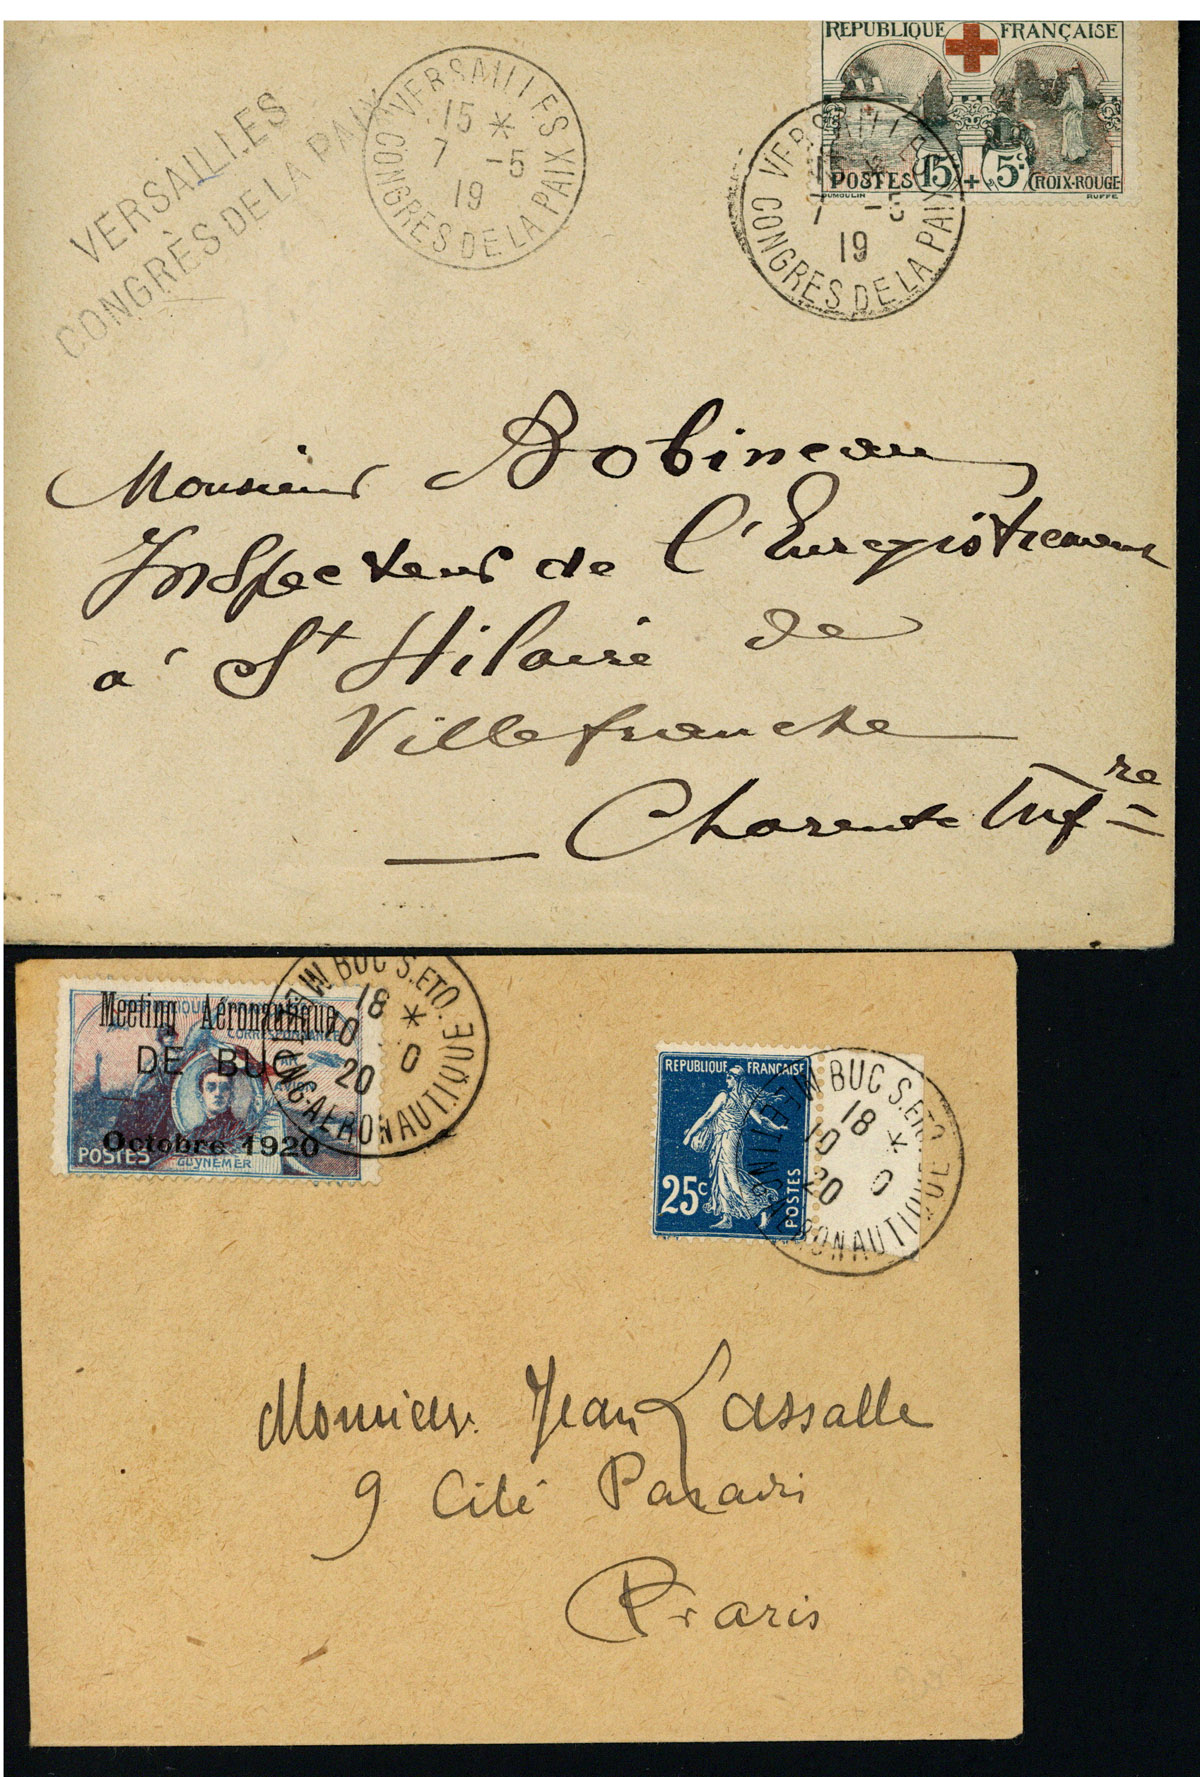 VERSAILLES
CONGRÈS DE LA PAIX
VERSAILLES
15 *
7 -5
19
CONGRES DE LA PAIX
REPUBLIQUE FRANÇAISE
POSTES 15c + 5c CROIX-ROUGE
DUMOULIN RUFFE
VERSAILLES
15 *
7 -5
19
CONGRES DE LA PAIX
Monsieur Bobineau
Inspecteur de l'Enregistrement
à St Hilaire de
Villefranche
Charente Infre
Meeting Aéronautique
DE BUC
Octobre 1920
CORRESPONDANCE
PAR
AVION
POSTES
GUYNEMER
BUC S.ETO.
18 *
10 0
20
MEETING-AERONAUTIQUE
REPUBLIQUE FRANÇAISE
25c
POSTES
BUC S.ETO.
18 *
10 0
20
MEETING-AERONAUTIQUE
Monsieur Jean Lassalle
9 Cité Paradis
Paris